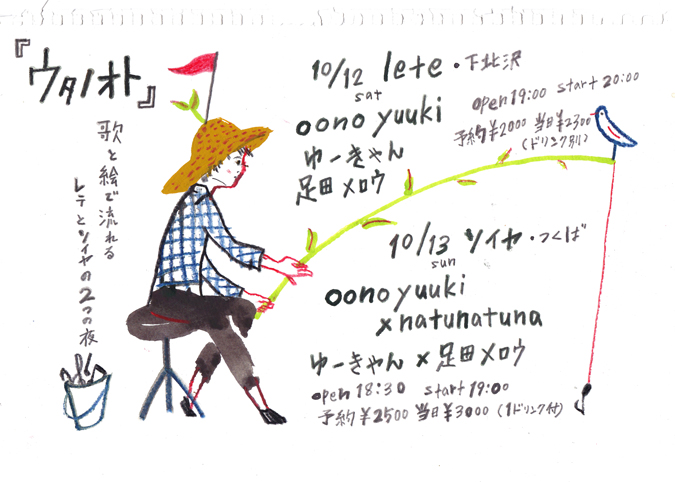 『ウタノオト』
歌と絵で流れる
レテとソイヤの2つの夜
10/12 lete・下北沢
sat
open 19:00 start 20:00
oono yuuki
予約¥2000 当日¥2300
(ドリンク別)
ゆーきゃん
足田メロウ
10/13 ソイヤ・つくば
sun
oono yuuki
×natunatuna
ゆーきゃん×足田メロウ
open 18:30 start 19:00
予約¥2500 当日¥3000 (1ドリンク付)